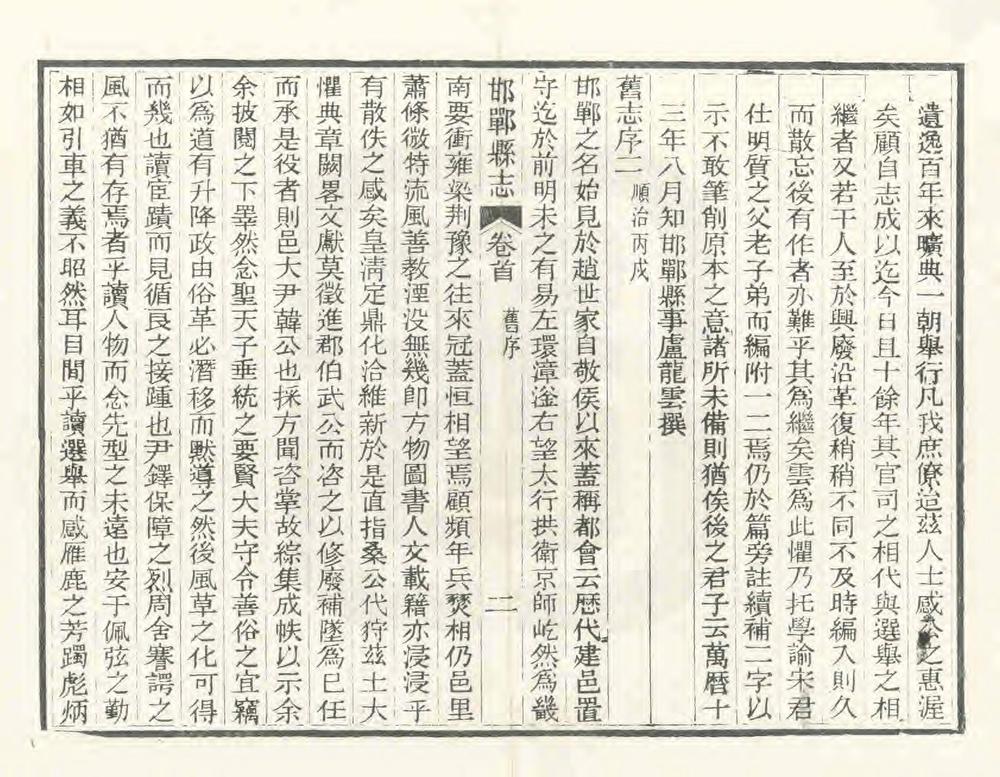 遺逸百年來曠典一朝舉行凡我庶僚迨茲人士感公之惠渥
矣顧自志成以迄今日且十餘年其官司之相代與選舉之相
繼者又若干人至於興廢沿革復稍稍不同不及時編入則久
而散忘後有作者亦難乎其爲繼矣雲爲此懼乃托學諭宋君
仕明質之父老子弟而編附一二焉仍於篇旁註續補二字以
示不敢筆削原本之意諸所未備則猶俟後之君子云萬曆十
三年八月知邯鄲縣事盧龍雲撰
舊志序二 順治丙戌
邯鄲之名始見於趙世家自敬侯以來蓋稱都會云歷代建邑置
守迄於前明未之有易左環漳滏右望太行拱衛京師屹然爲畿
邯鄲縣志 卷首 舊序 二
南要衝雍梁荆豫之往來冠蓋恒相望焉顧頻年兵燹相仍邑里
蕭條微特流風善教湮没無幾卽方物圖書人文載籍亦浸浸乎
有散佚之感矣皇淸定鼎化洽維新於是直指桑公代狩茲土大
懼典章闕畧文獻莫徵進郡伯武公而咨之以修廢補墜爲巳任
而承是役者則邑大尹韓公也採方聞咨掌故綜集成帙以示余
余披閱之下睪然念聖天子垂統之要賢大夫守令善俗之宜竊
以爲道有升降政由俗革必潛移而默導之然後風草之化可得
而幾也讀宦蹟而見循良之接踵也尹鐸保障之烈周舍謇諤之
風不猶有存焉者乎讀人物而念先型之未遠也安于佩弦之勤
相如引車之義不昭然耳目間乎讀選舉而感雁鹿之芳躅彪炳